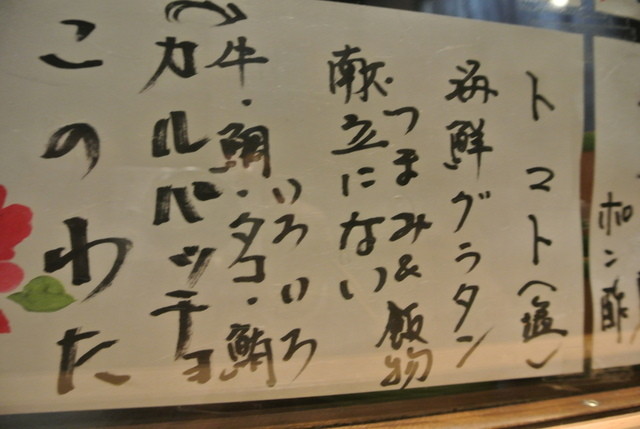 ポン酢
トマト(塩)
海鮮グラタン
つまみ&飯物
献立にない
いろいろ
牛・鯛・タコ・鮪
カルパッチョ
このわた